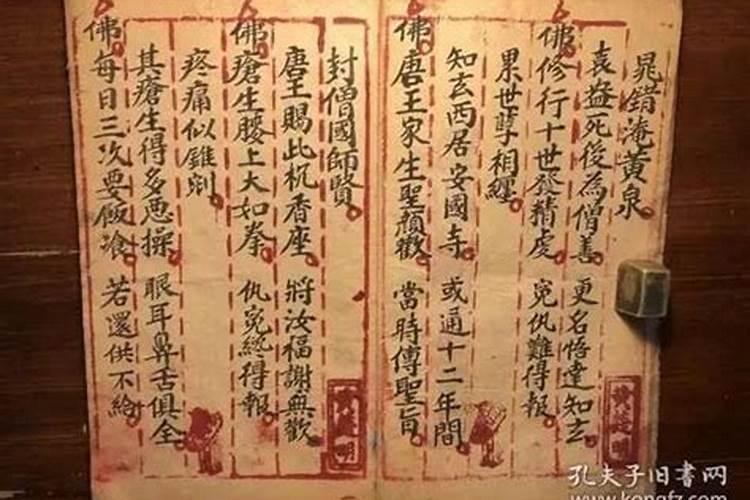 晁錯淹黃泉
袁益死後為僧善 更名悟達知玄
佛修行十世發精虔 冤仇難得報
累世孽相纏
知玄西居安國寺 或通十二年間
佛唐王家生聖顏歡 當時傳聖旨
封僧國師賢
唐王賜此枕香座 將汝福謝無歡
佛瘡生腰上大如拳 仇冤終得報
疼痛似錐剜
其瘡生得多惡操 眼耳鼻舌俱全
佛每日三次要飯飡 若還供不給
孔夫子旧书网